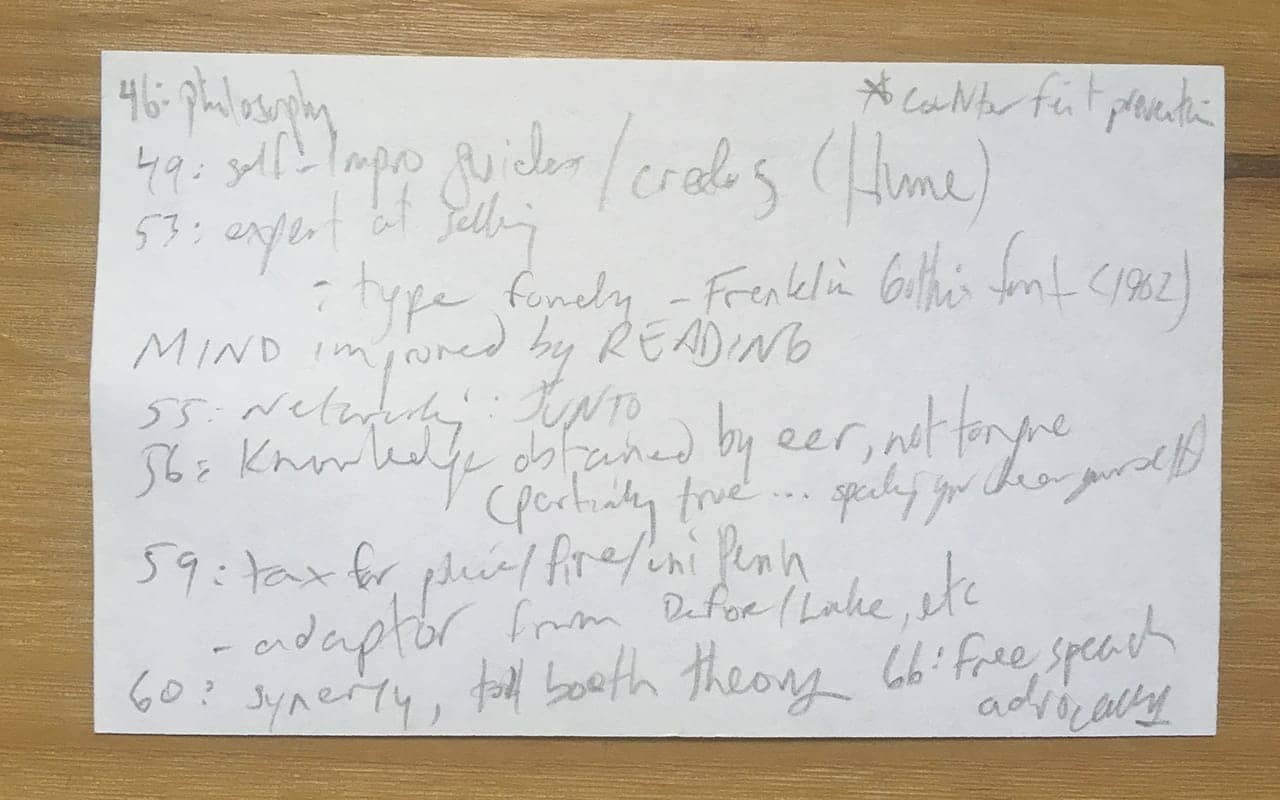 46: philosophy
* counterfeit prevention
49: self-impro guides / credos (Hume)
53: expert at selling
: type family - Franklin Gothic font (1902)
MIND improved by READING
55: Networking: JUNTO
56: Knowledge obtained by ear, not tongue
(partially true ... speaking you hear yourself)
59: tax for police/fire/uni Penn
- adaptor from Defoe/Locke, etc
60: synergy, toll booth theory
66: free speech
advocacy